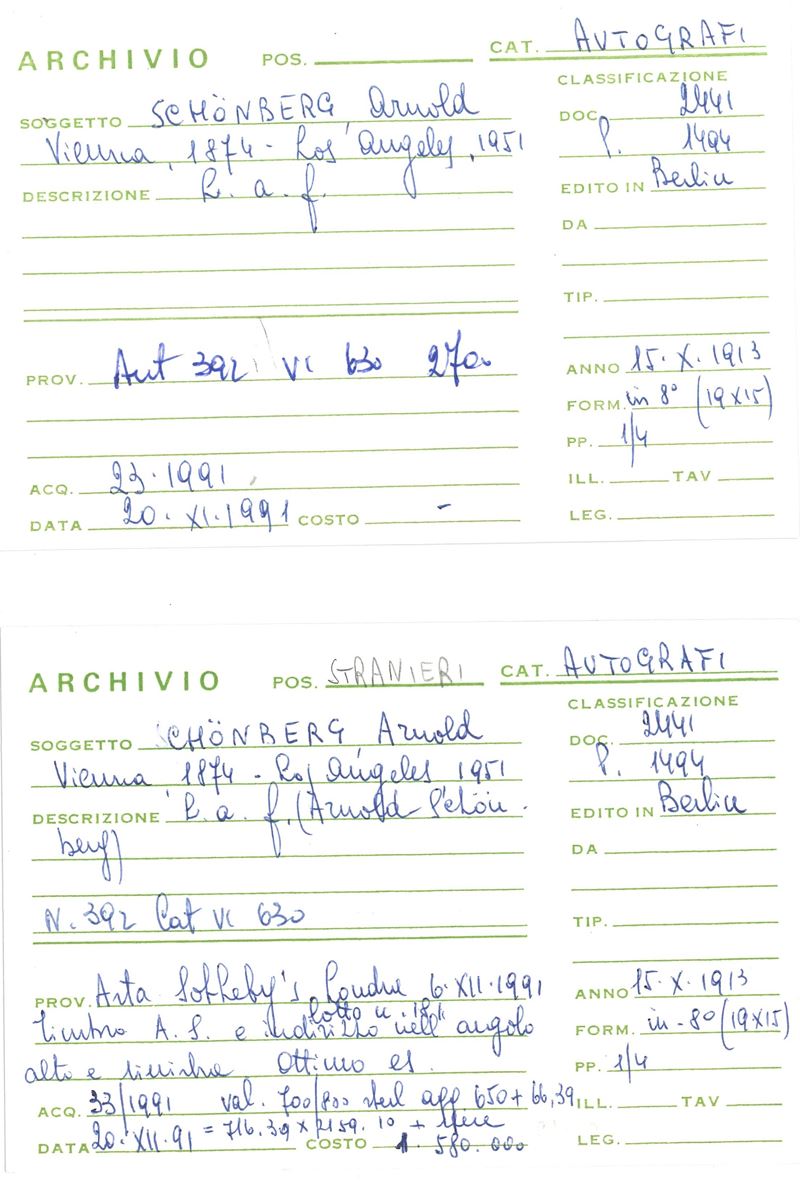 ARCHIVIO POS. CAT. AUTOGRAFI
CLASSIFICAZIONE
SOGGETTO SCHÖNBERG, Arnold
DOC. 2441
Vienna, 1874 - Los Angeles, 1951
P. 1494
DESCRIZIONE L. a. f.
EDITO IN Berlin
DA
TIP.
PROV. Aut 392 VI 630 270.
ANNO 15. X. 1913
FORM. in 8° (19X15)
PP. 1/4
ACQ. 23.1991
ILL. TAV
DATA 20. XI. 1991 COSTO -
LEG.
ARCHIVIO POS. STRANIERI CAT. AUTOGRAFI
CLASSIFICAZIONE
SOGGETTO SCHÖNBERG, Arnold
DOC. 2441
Vienna 1874 - Los Angeles 1951
P. 1494
DESCRIZIONE L. a. f. (Arnold Schön-
EDITO IN Berlin
berg)
DA
N. 392 Cat VI 630
TIP.
PROV. Asta Sotheby's, Londra 6. XII. 1991
lotto n.
ANNO 15. X. 1913
timbro A. S. e indirizzo nell'angolo
FORM. in-8° (19X15)
alto e sinistra. Ottimo es.
PP. 1/4
ACQ. 33/1991 val. 700/800 sterl agg 650 + 66,39
ILL. TAV
DATA 20. XII. 91 = 716.39 x 2159.10 + spese
COSTO 1. 580.000
LEG.